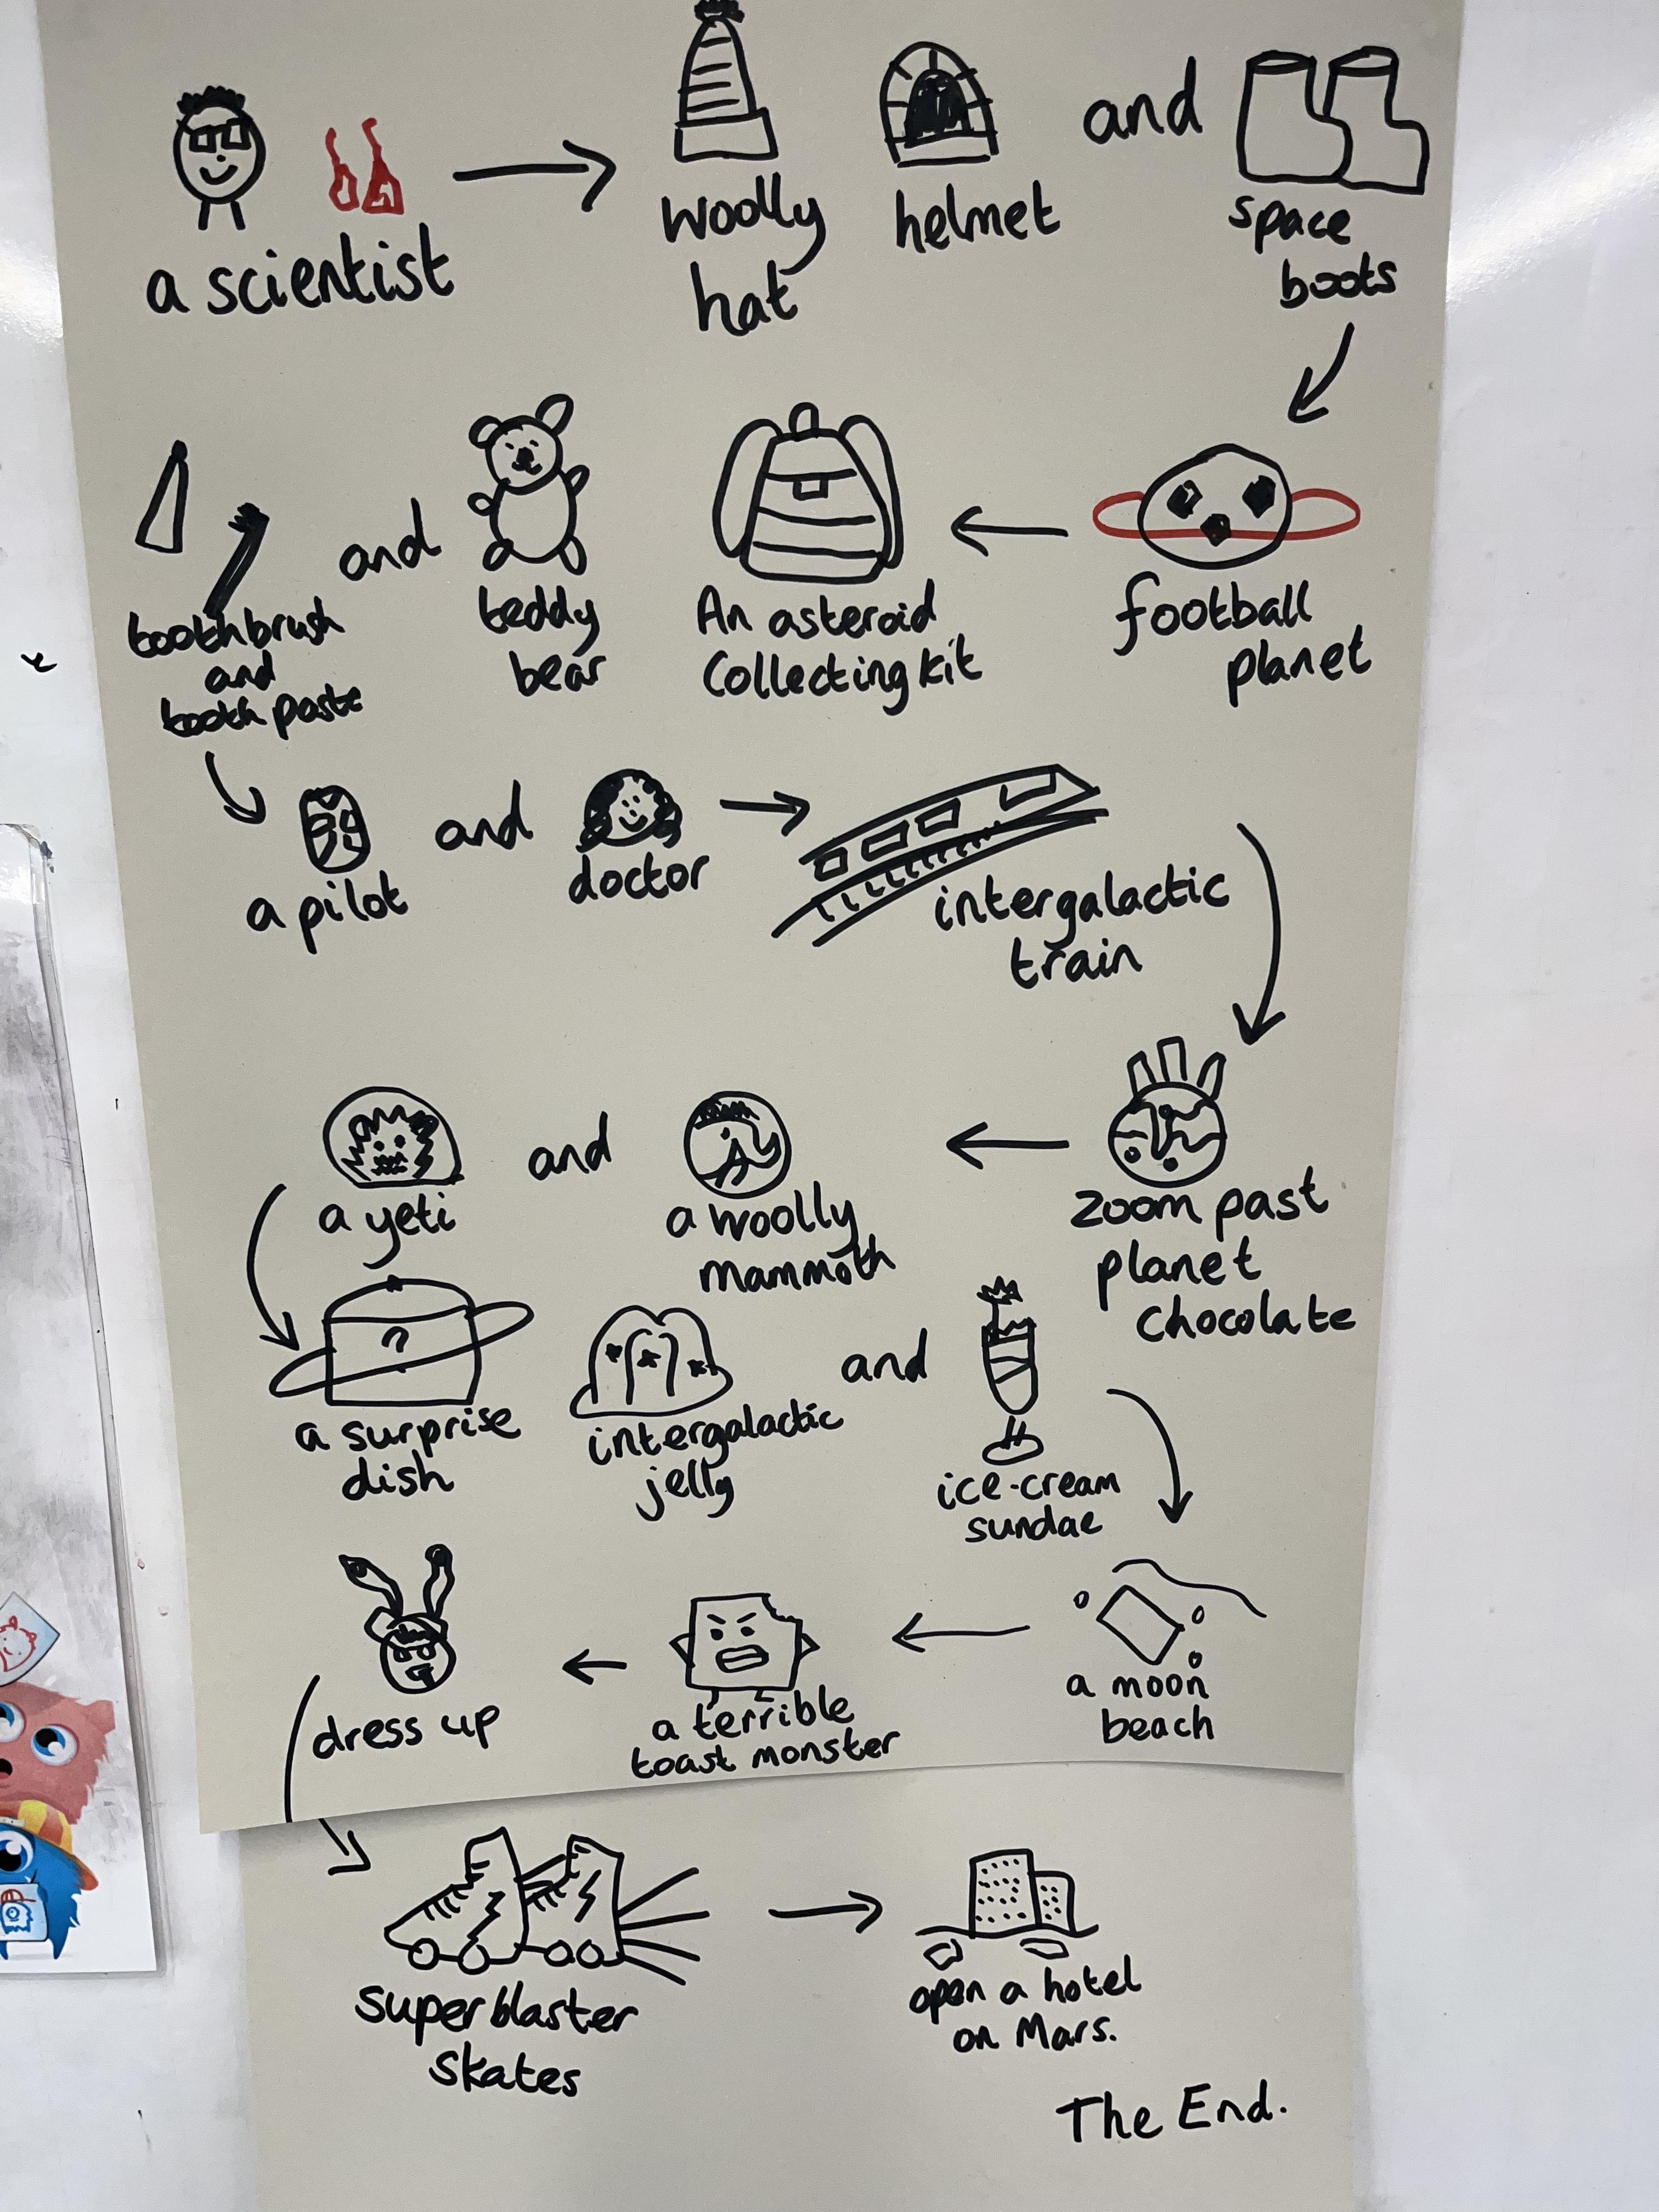 a scientist
woolly
hat
helmet
and
space
boots
football
planet
An asteroid
collecting kit
teddy
bear
and
toothbrush
and
tooth paste
a pilot
and
doctor
intergalactic
train
zoom past
planet
chocolate
a woolly
mammoth
and
a yeti
a surprise
dish
intergalactic
jelly
and
ice-cream
sundae
a moon
beach
a terrible
toast monster
dress up
super blaster
skates
open a hotel
on Mars.
The End.